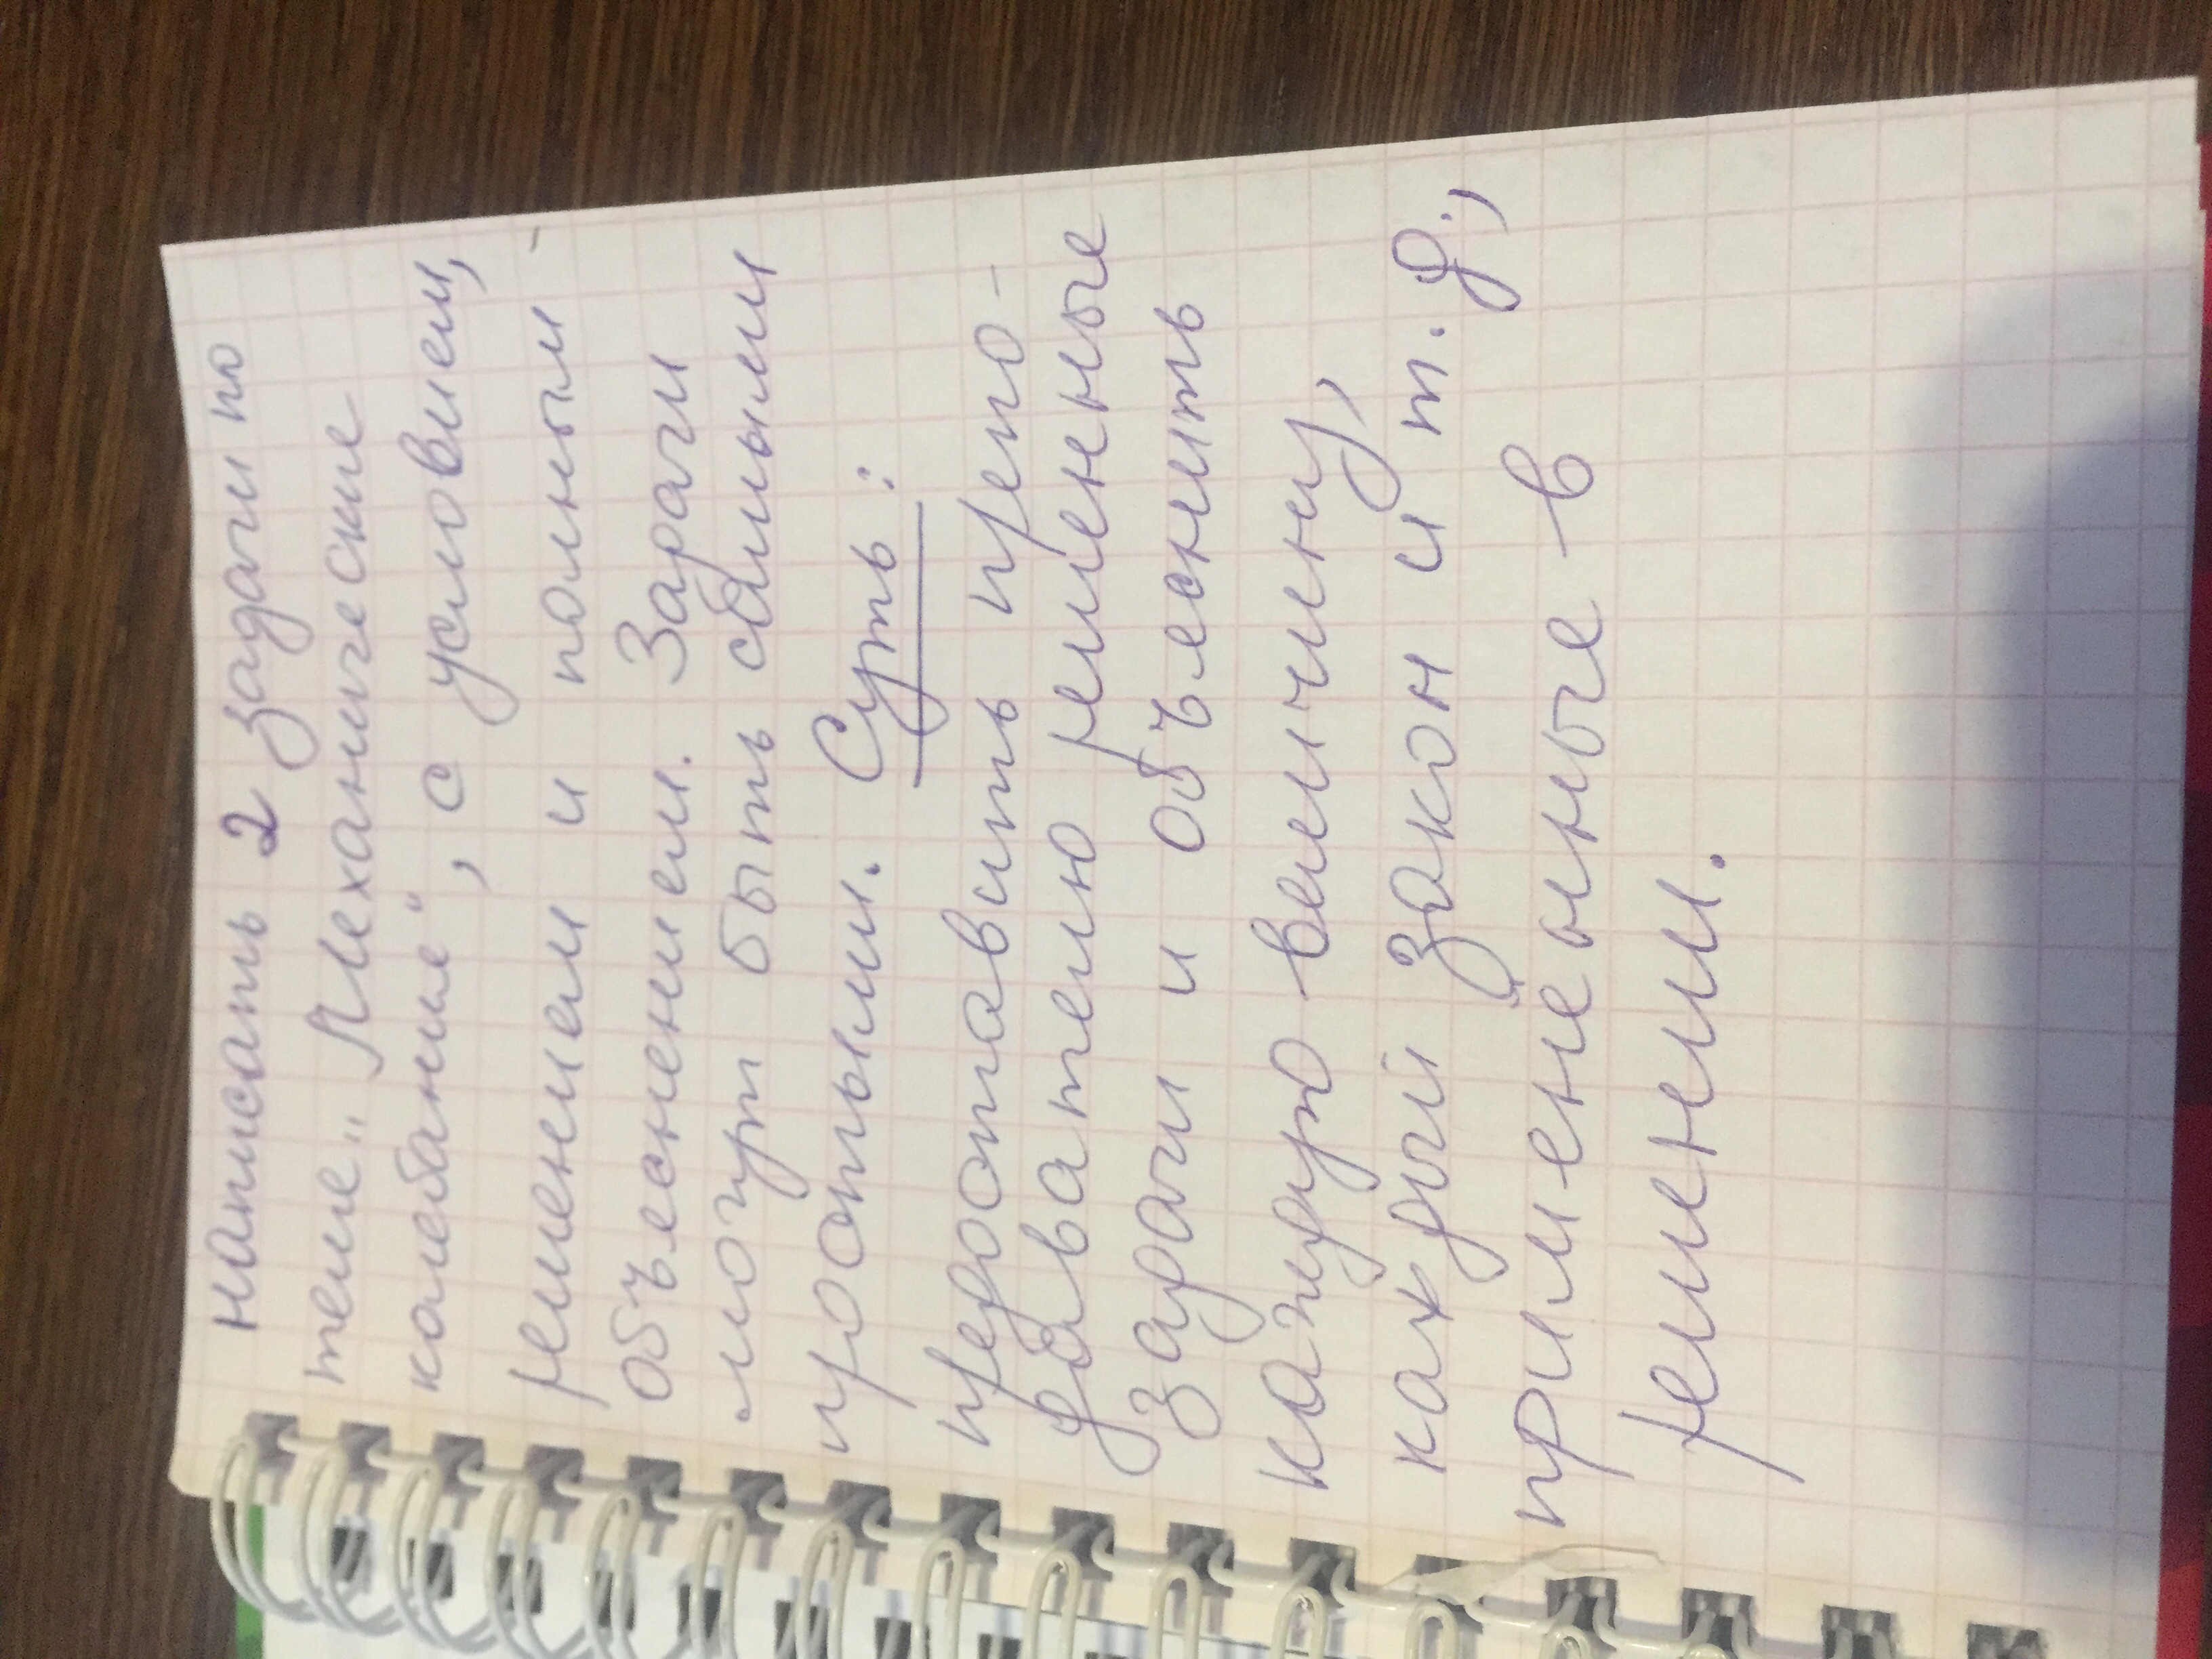 написать 2 задачи по
теме „Механические
колебание", с условием,
решением и полным -
объеснением. Задачи
могут быть самыми
простыми. Суть :
предоставить препо-
давателю решенные
задачи и объеснить
каждую величину,
каждый закон и т.д.,
примененные в
решении.